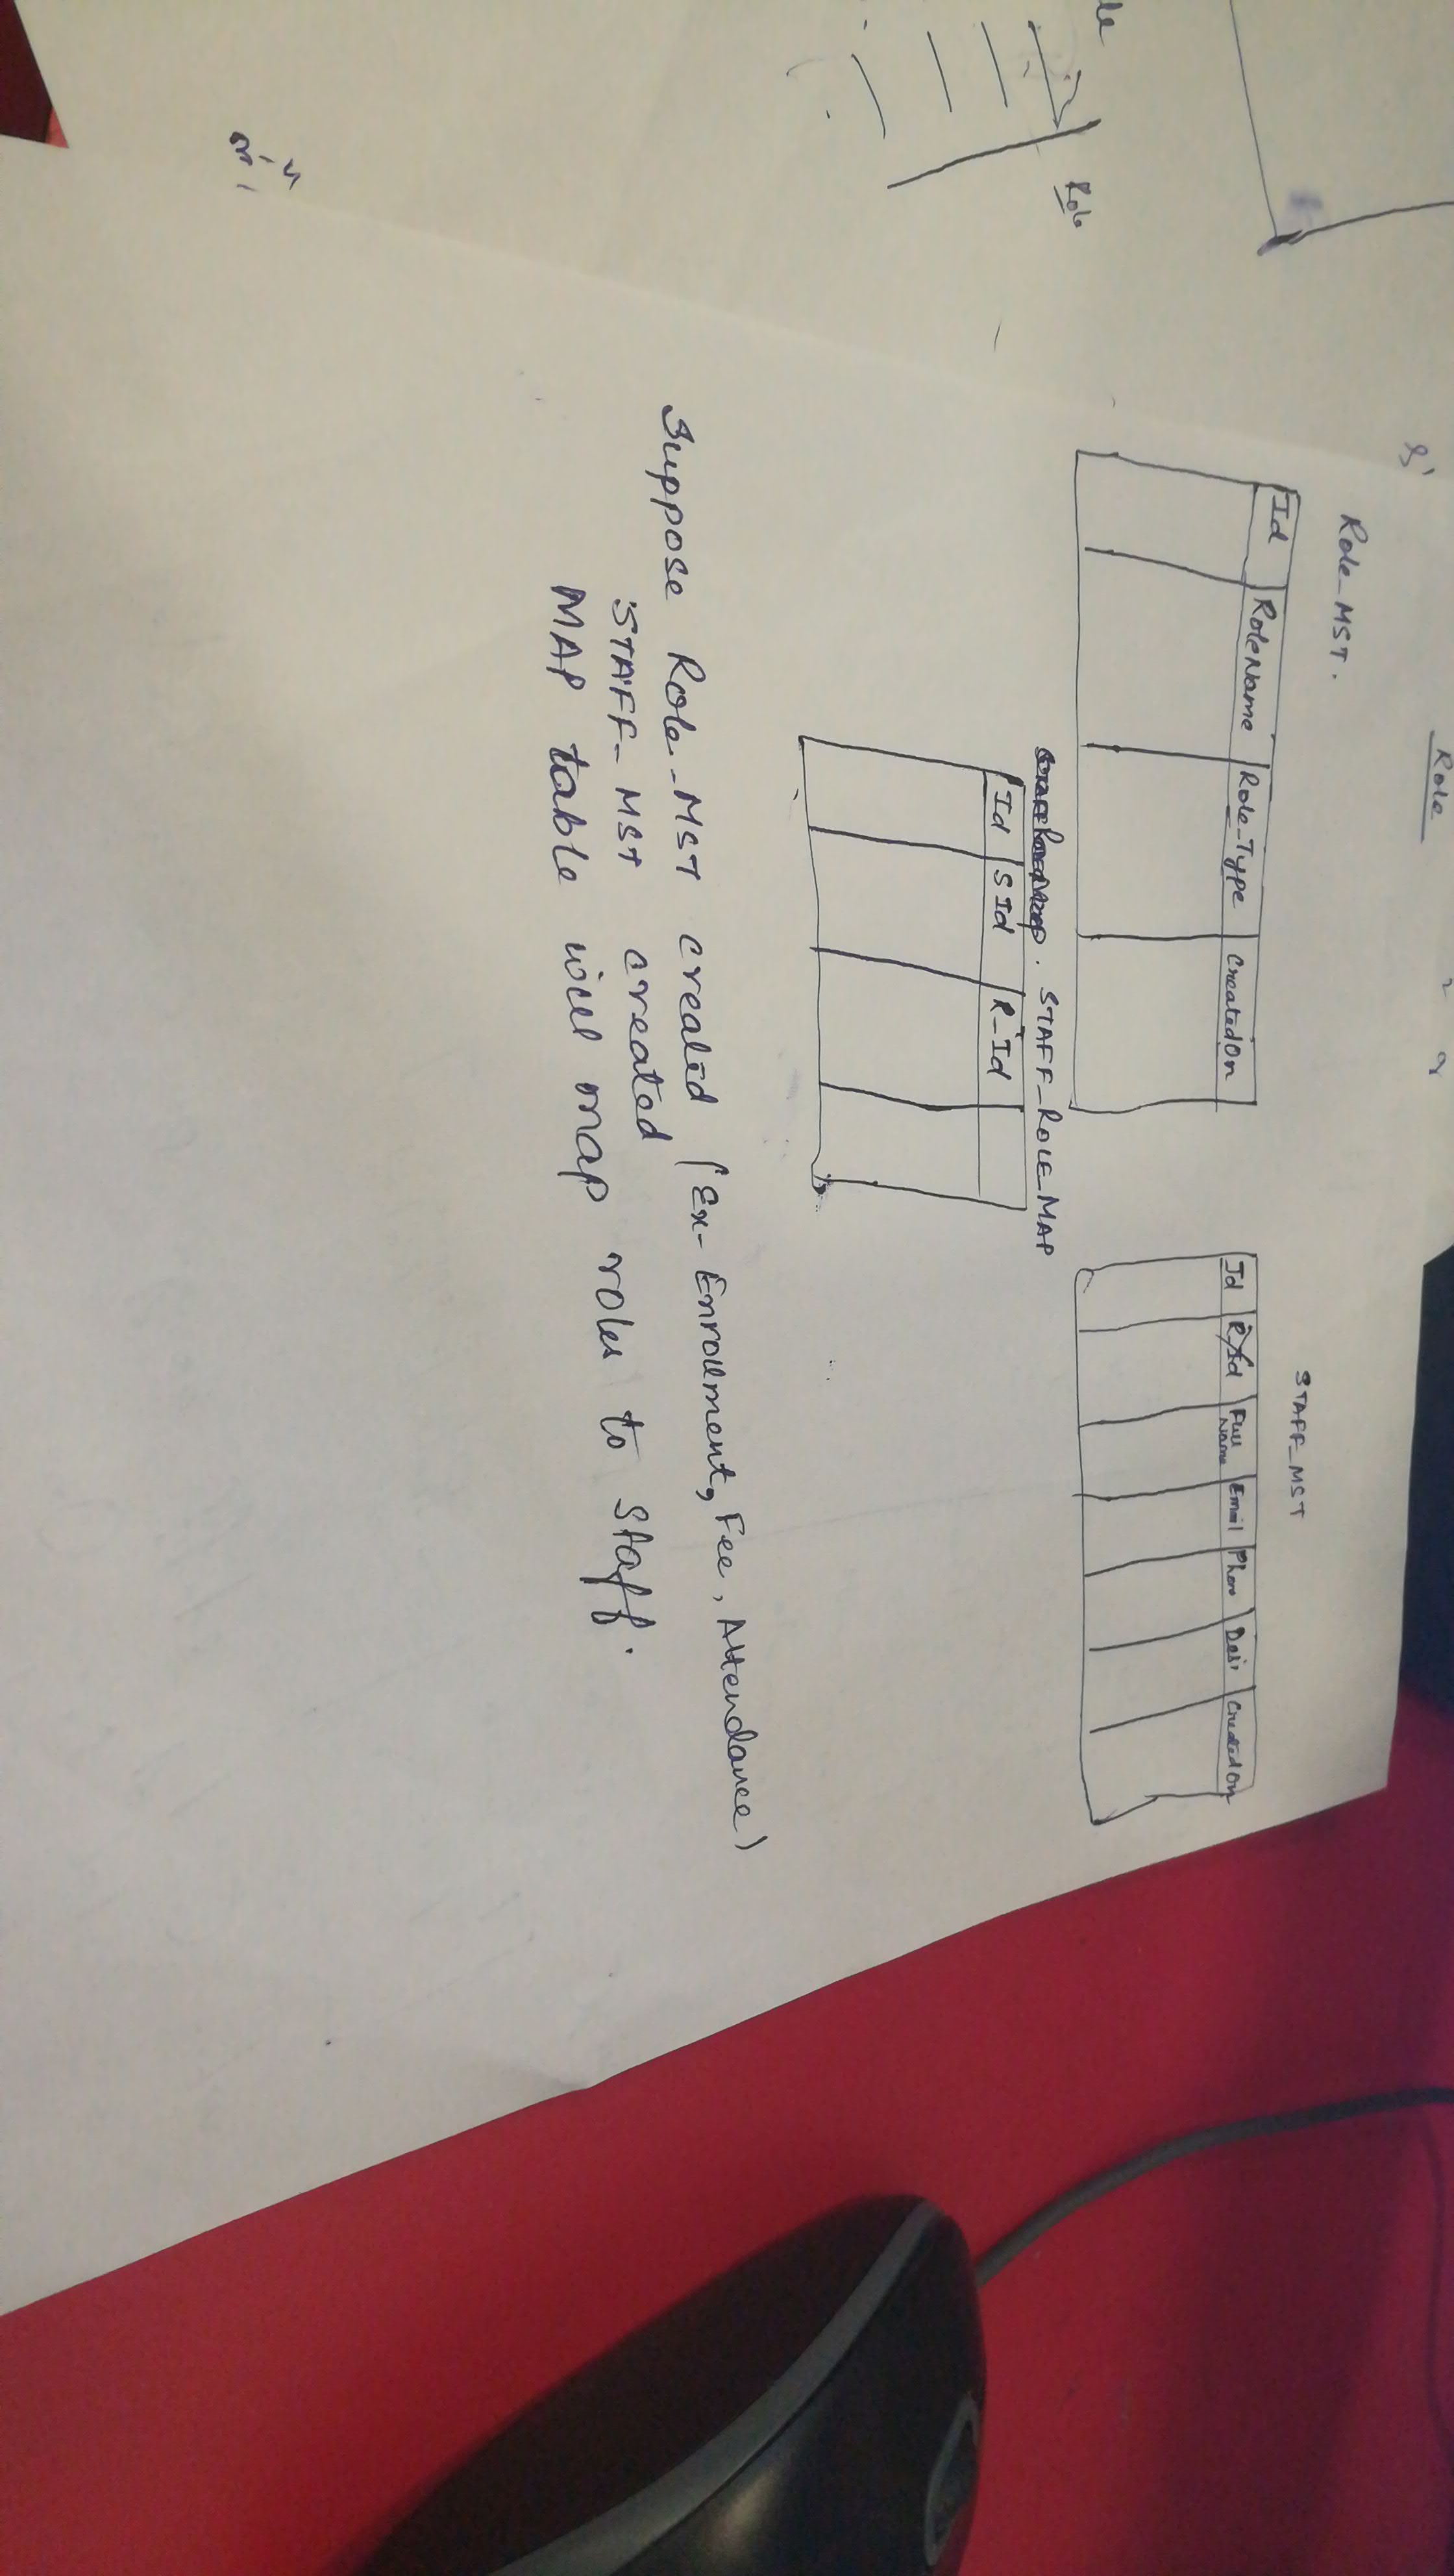 Role
Role_MST.
Id RoleName Role_Type CreatedOn
STAFF_MST
Id Full Name Email Phone Desi. CreatedOn
STAFF_ROLE_MAP
Id S Id R_Id
Suppose Role_MST created (Ex- Enrollment, Fee, Attendance)
STAFF_MST created
MAP table will map roles to staff.
Role